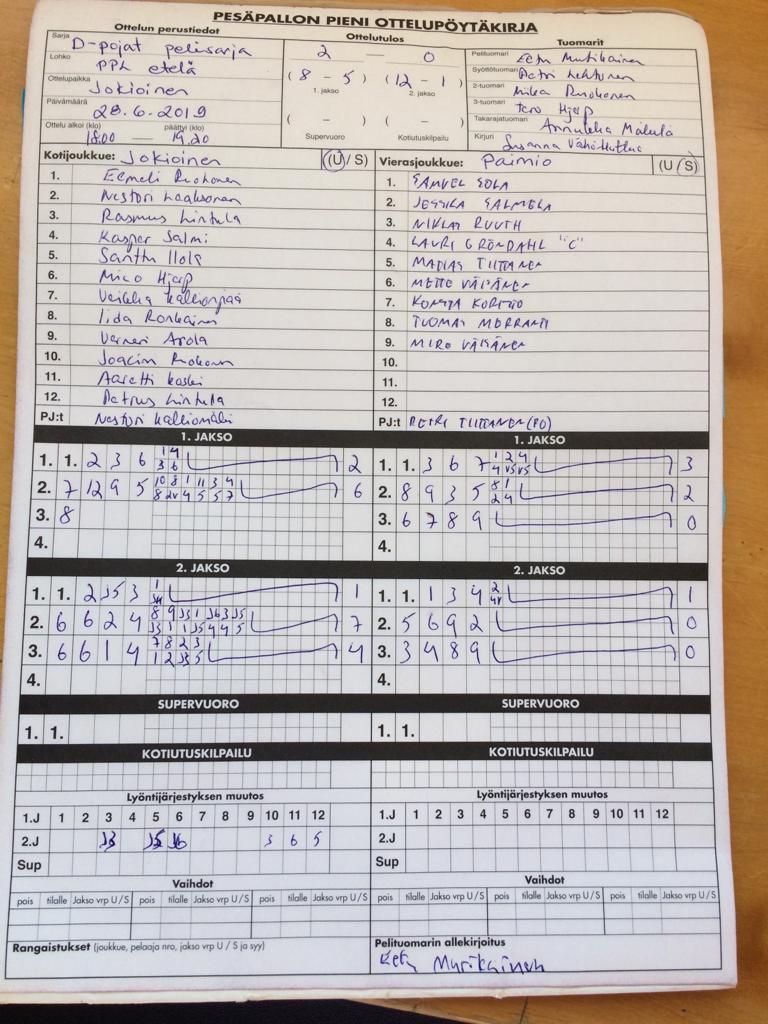 PESÄPALLON PIENI OTTELUPÖYTÄKIRJA
Ottelun perustiedot
Ottelutulos
Tuomarit
Sarja D-pojat pelisarja
Lohko PPL etelä
Ottelupaikka Jokioinen
Päivämäärä 28.6.2019
Ottelu alkoi (klo) päättyi (klo)
18.00 — 19.20
2 — 0
(8 - 5) (12 - 1)
1. jakso 2. jakso
( - ) ( - )
Supervuoro Kotiutuskilpailu
Pelituomari Eetu Murikainen
Syöttötuomari Petri Lehtonen
2-tuomari Mika Ruohonen
3-tuomari Tero Hjerp
Takarajatuomari Annukka Mäkelä
Kirjuri Susanna
Kotijoukkue: Jokioinen (U / S)
1. Eemeli Ruohonen
2. Nestori Laaksonen
3. Rasmus Lintula
4. Kasper Salmi
5. Santtu Ilola
6. Mico Hjerp
7. Veikka Kallionpää
8. Iida Ronkainen
9. Verneri Arola
10. Joacim Ruohonen
11. Aaretti Koski
12. Petrus Lintula
PJ:t Nestori Kallionmäki
Vierasjoukkue: Paimio (U / S)
1. SAMUEL SOLA
2. JESSIKA SALMELA
3. NIKLAS RUUTH
4. LAURI GRÖNDAHL "C"
5. MATIAS TIITTANEN
6. METTE VÄISÄNEN
7.
8. TUOMAS
9. MIRO VÄISÄNEN
10.
11.
12.
PJ:t PETRI TIITTANEN (PO)
1. JAKSO
1. 1. 2 3 6 1 4 2
3 6
2. 7 12 9 5 10 8 1 11 3 4 6
8 2V 4 5 5 7
3. 8
4.
1. JAKSO
1. 1. 3 6 7 1 2 4 3
4 V5 V5
2. 8 9 3 5 8 1 2
2 4
3. 6 7 8 9 0
4.
2. JAKSO
1. 1. 2 J5 3 1 1
2. 6 6 2 4 8 9 J3 1 J6 3 J5 7
J3 1 1 J5 4 4 5
3. 6 6 1 4 7 8 2 3 4
1 2 J3 5
4.
2. JAKSO
1. 1. 1 3 4 2 1
4V
2. 5 6 9 2 0
3. 3 4 8 9 0
4.
SUPERVUORO
1. 1.
SUPERVUORO
1. 1.
KOTIUTUSKILPAILU
KOTIUTUSKILPAILU
Lyöntijärjestyksen muutos
1.J 1 2 3 4 5 6 7 8 9 10 11 12
2.J J3 J5 J6 3 6 5
Sup
Lyöntijärjestyksen muutos
1.J 1 2 3 4 5 6 7 8 9 10 11 12
2.J
Sup
Vaihdot
pois tilalle Jakso vrp U / S pois tilalle Jakso vrp U / S pois tilalle Jakso vrp U / S
Vaihdot
pois tilalle Jakso vrp U / S pois tilalle Jakso vrp U / S pois tilalle Jakso vrp U / S
Rangaistukset (joukkue, pelaaja nro, jakso vrp U / S ja syy)
Pelituomarin allekirjoitus
Eetu Murikainen